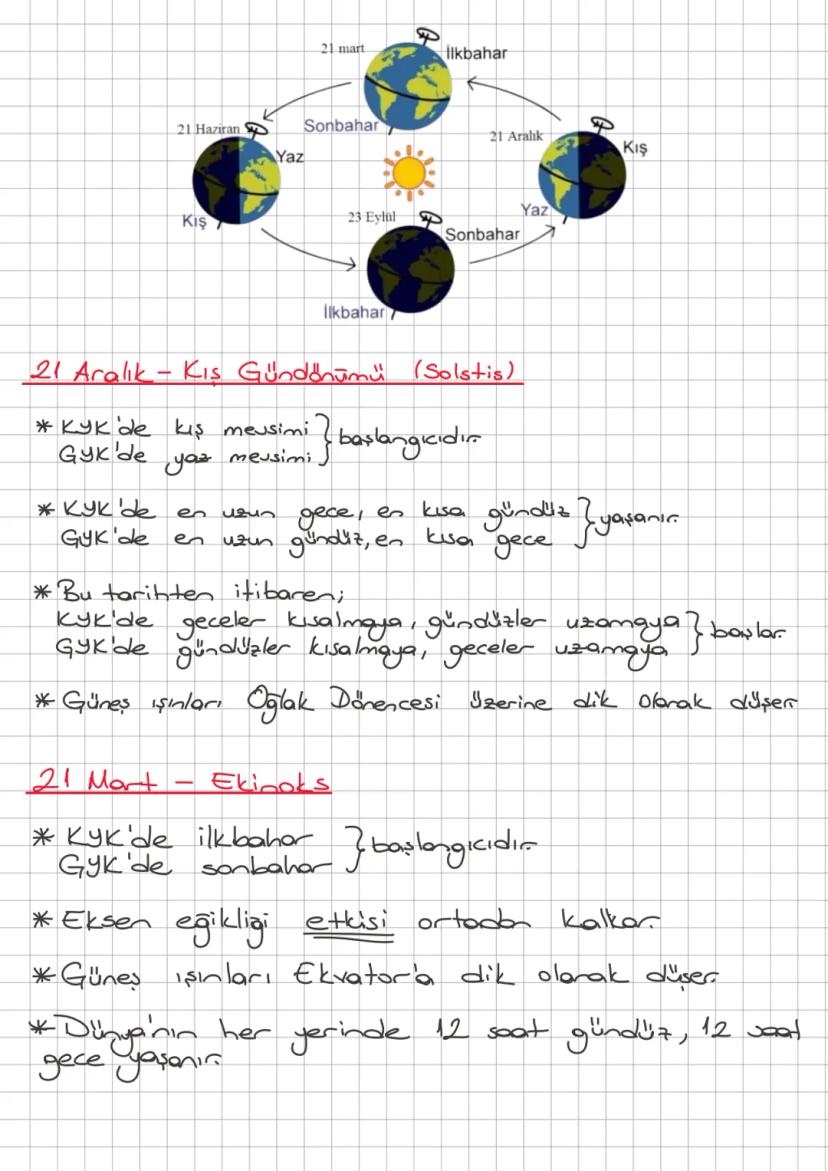 21 mart
İlkbahar
21 Haziran
Sonbahar
21 Aralık
Yaz
Kış
Kış
23 Eylül
Yaz
Sonbahar
İlkbahar
21 Aralık - Kış Gündönümü (Solstis)
* KYK'de kış mevsimi } başlangıcıdır
GYK'de yaz mevsimi
* KYK'de en uzun gece, en kısa gündüz } yaşanır.
GYK'de en uzun gündüz, en kısa gece
* Bu tarihten itibaren;
KYK'de geceler kısalmaya, gündüzler uzamaya } başlar.
GYK'de gündüzler kısalmaya, geceler uzamaya
* Güneş ışınları Oğlak Dönencesi üzerine dik olarak düşer
21 Mart - Ekinoks
* KYK'de ilkbahar } başlangıcıdır
GYK'de sonbahar
* Eksen eğikliği etkisi ortadan kalkar.
* Güneş ışınları Ekvator'a dik olarak düşer.
* Dünya'nın her yerinde 12 saat gündüz, 12 saat
gece yaşanır.